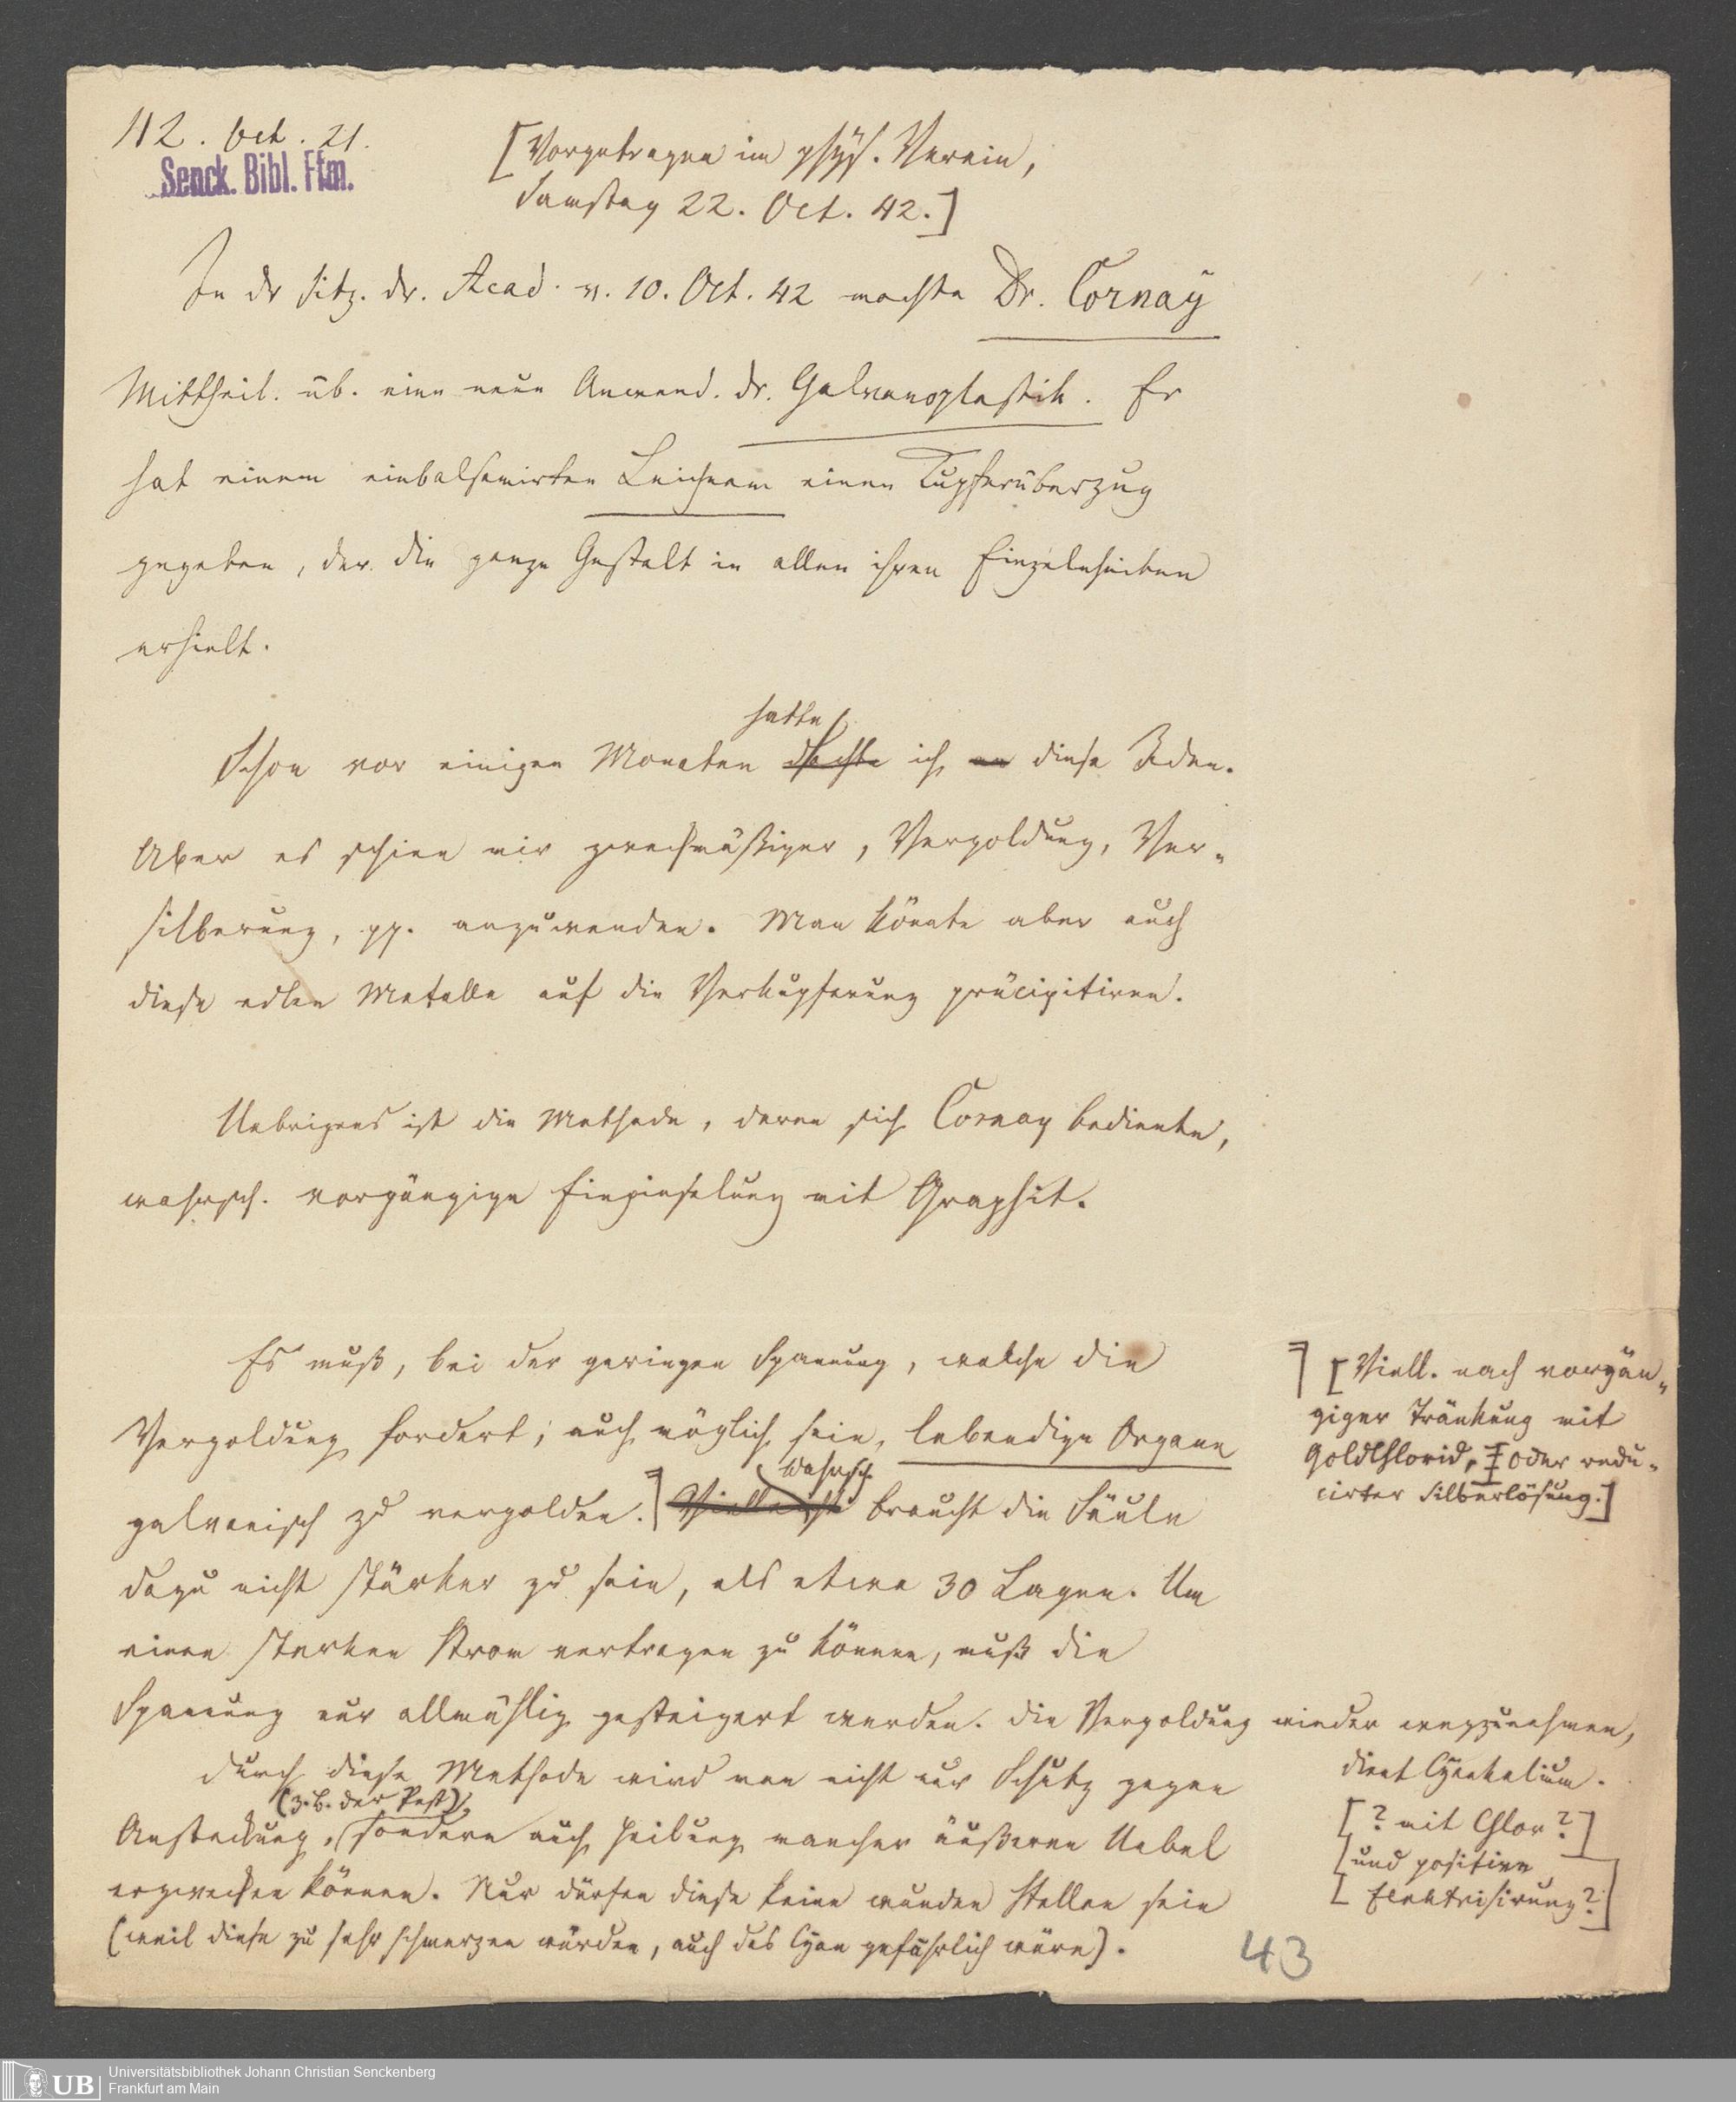 42. Oct. 21.
Senck. Bibl. Ffm.
[Vorgetragen im phys. Verein,
Samstag 22. Oct. 42.]
In dr Sitz. dr. Acad. v. 10. Oct. 42 machte Dr. Cornaÿ
Mittheil. üb. eine neue Anwend. dr. Galvanoplastik. Er
hat einem einbalsamirten Leichnam einen Kupferüberzug
gegeben, der die ganze Gestalt in allen ihren Einzelnheiten
erhielt.
hatte
Schon vor einigen Monaten dachte ich an diese Idee.
Aber es schien mir zweckmäßiger, Vergoldung, Ver-
silberung, pp. anzuwenden. Man könnte aber auch
diese edlen Metalle auf die Verkupferung präcipitiren.
Uebrigens ist die Methode, deren sich Cornay bediente,
wahrsch. vorgängige Einpinselung mit Graphit.
Es muß, bei der geringen Spannung, welche die
Vergoldung fordert, auch möglich sein, lebendige Organe
wahrsch.
galvanisch zu vergolden.] Vielleicht braucht die Säule
dazu nicht stärker zu sein, als etwa 30 Lagen. Um
einen starken Strom vertragen zu können, muß die
Spannung nur allmählig gesteigert werden. Die Vergoldung wieder wegzunehmen,
dient Cyankalium.
[? mit Chlor?]
[und positive
Elektrisirung?]
Durch diese Methode wird man nicht nur Schutz gegen
(z. B. der Pest),
Ansteckung, sondern auch Heilung mancher äußeren Uebel
erzwecken können. Nur dürfen diese keine wunden Stellen sein
(weil diese zu sehr schmerzen würden, auch das Cyan gefährlich wäre).
] [Viell. nach vorgän-
giger Tränkung mit
Goldchlorid, oder redu-
cirter Silberlösung.]
43
UB
Universitätsbibliothek Johann Christian Senckenberg
Frankfurt am Main